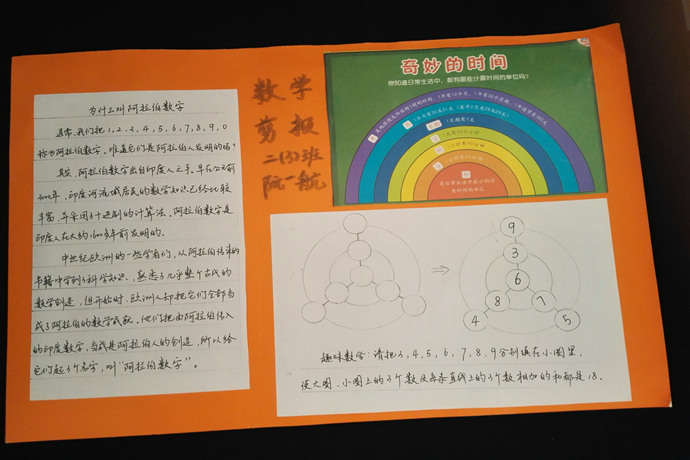 为什么叫阿拉伯数字
通常,我们把1,2,3,4,5,6,7,8,9,0
称为阿拉伯数字。难道它们是阿拉伯人发明的吗?
其实,阿拉伯数字出自印度人之手。早在公元前
3000年,印度河流域居民的数学知识已经比较
丰富,并采用了十进制的计算法。阿拉伯数字是
印度人在大约1600多年前发明的。
中世纪欧洲的一些学者们,从阿拉伯传来的
书籍中学到了科学知识,熟悉了几乎整个古代的
数学创造,但开始时,欧洲人却把它们全部当
成了阿拉伯的数学成就。他们把由阿拉伯传入
的印度数字,当成是阿拉伯人的创造,所以给
它们起了个名字,叫“阿拉伯数字”。
数学
剪报
二(3)班
阮一航
奇妙的时间
你知道日常生活中,都有哪些计量时间的单位吗?
秒
是日常生活中最小的计
量时间的单位
9
3
6
8
7
4
5
⇒
趣味数学:请把3,4,5,6,7,8,9分别填在小圈里,
使大圈、小圈上的3个数及每条直线上的3个数相加的和都是18.